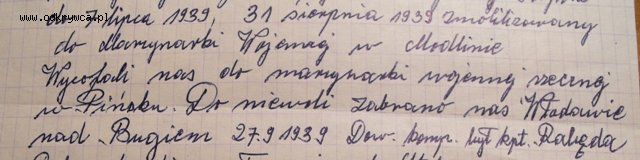 www.odkrywca.pl
do 7 lipca 1939, 31 sierpnia 1939 zmobilizowany
do Marynarki Wojennej w Modlinie
Wycofali nas do marynarki wojennej rzecznej
w Pińsku. Do niewoli zabrano nas Włodawie
nad Bugiem 27.9 1939 Dow. komp. był kpt.